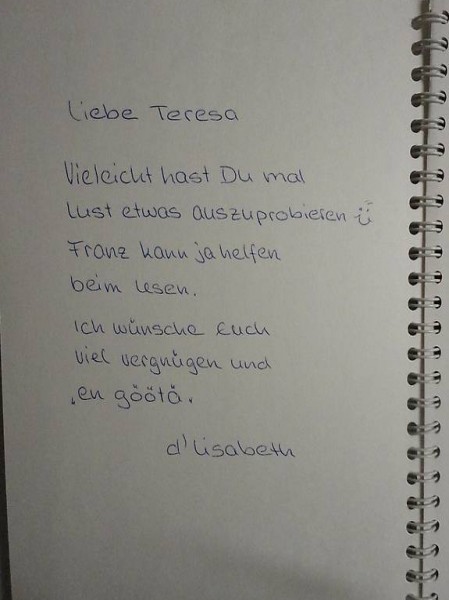 Liebe Teresa
Vieleicht hast Du mal
lust etwas auszuprobieren ü
Franz kann ja helfen
beim lesen.
Ich wünsche Euch
viel vergnügen und
„en göötä.
d'Lisabeth